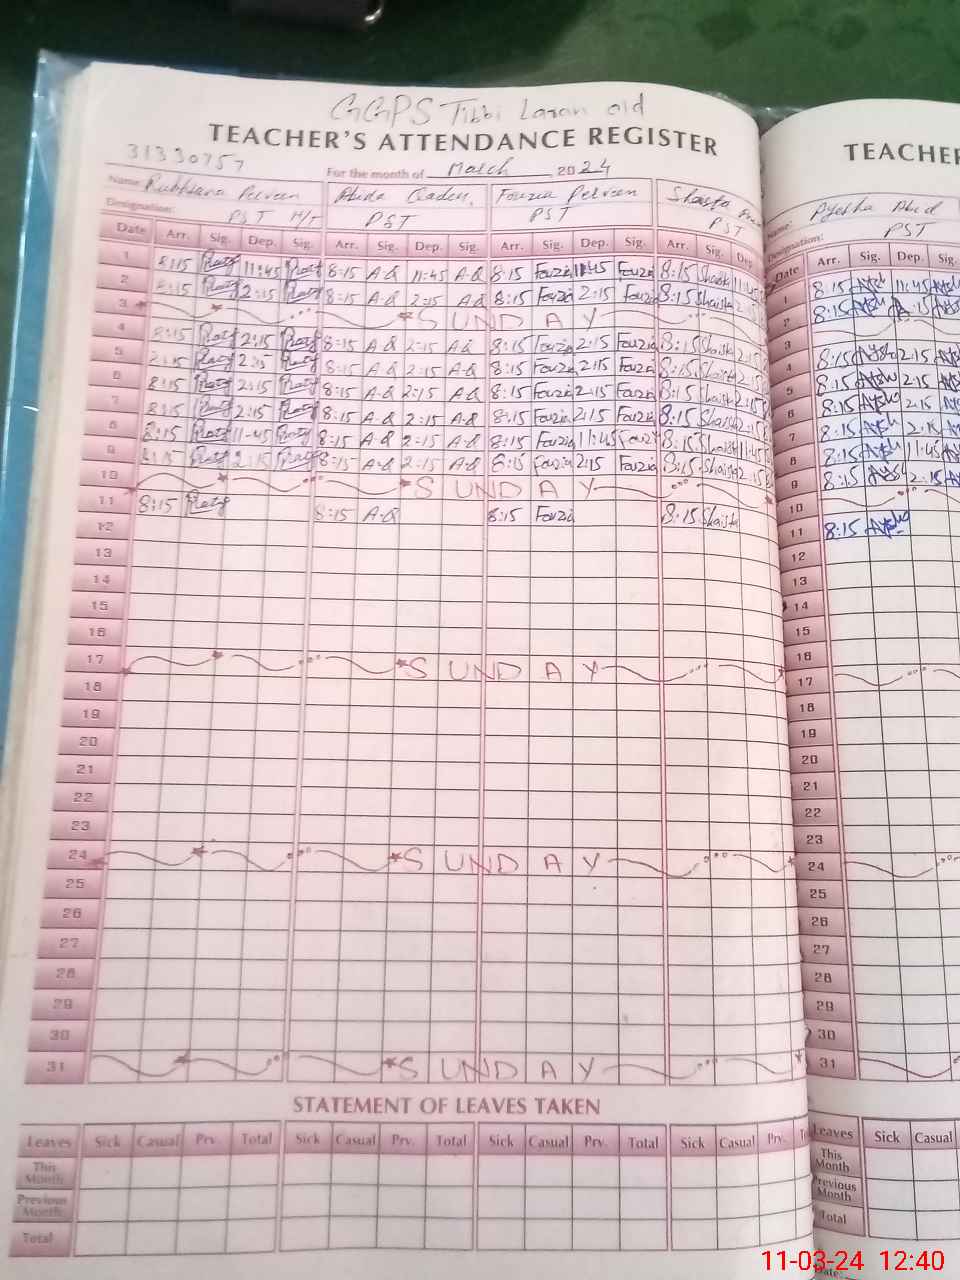 GGPS Tibbi Laran old
TEACHER'S ATTENDANCE REGISTER
31330757
For the month of March 2024
Name: Rukhsana Perveen Abida Qadeer. Fouzia Perveen Shaista
Designation: PST H/T PST PST PST
Date Arr. Sig. Dep. Sig. Arr. Sig. Dep. Sig. Arr. Sig. Dep. Sig. Arr. Sig. Dep
1 8:15 11:45 8:15 A-Q 11:45 A-Q 8:15 Fouzia 11:45 Fouzia 8:15 Shaista 11:45
2 8:15 2:15 8:15 A-Q 2:15 A-Q 8:15 Fouzia 2:15 Fouzia 8:15 Shaista 2:15
3 SUNDAY
4 8:15 2:15 8:15 A-Q 2:15 A-Q 8:15 Fouzia 2:15 Fouzia 8:15 Shaista 2:15
5 8:15 2:15 8:15 A-Q 2:15 A-Q 8:15 Fouzia 2:15 Fouzia 8:15 Shaista 2:15
6 8:15 2:15 8:15 A-Q 2:15 A-Q 8:15 Fouzia 2:15 Fouzia 8:15 Shaista 2:15
7 8:15 2:15 8:15 A-Q 2:15 A-Q 8:15 Fouzia 2:15 Fouzia 8:15 Shaista 2:15
8 8:15 11-45 8:15 A-Q 2:15 A-Q 8:15 Fouzia 11:45 Fouzia 8:15 Shaista 11:45
9 8:15 2:15 8:15 A-Q 2:15 A-Q 8:15 Fouzia 2:15 Fouzia 8:15 Shaista 2:15
10 SUNDAY
11 8:15 8:15 A-Q 8:15 Fouzia 8:15 Shaista
12
13
14
15
16
17 SUNDAY
18
19
20
21
22
23
24 SUNDAY
25
26
27
28
29
30
31 SUNDAY
STATEMENT OF LEAVES TAKEN
Leaves Sick Casual Prv. Total Sick Casual Prv. Total Sick Casual Prv. Total Sick Casual Prv.
This Month
Previous Month
Total
TEACHER
Name: Ayesha Abid
Designation: PST
Date Arr. Sig. Dep. Sig.
1 8:15 Aysh 11:45 Aysh
2 8:15 Aysh 2:15 Aysh
3
4 8:15 Aysh 2:15 Aysh
5 8:15 Aysh 2:15 Aysh
6 8:15 Aysh 2:15 Aysh
7 8:15 Aysh 2:15 Aysh
8 8:15 Aysh 11:45 Aysh
9 8:15 Aysh 2:15 Aysh
10
11 8:15 Aysh
12
13
14
15
16
17
18
19
20
21
22
23
24
25
26
27
28
29
30
31
Leaves Sick Casual
This Month
Previous Month
Total
Date:
11-03-24 12:40